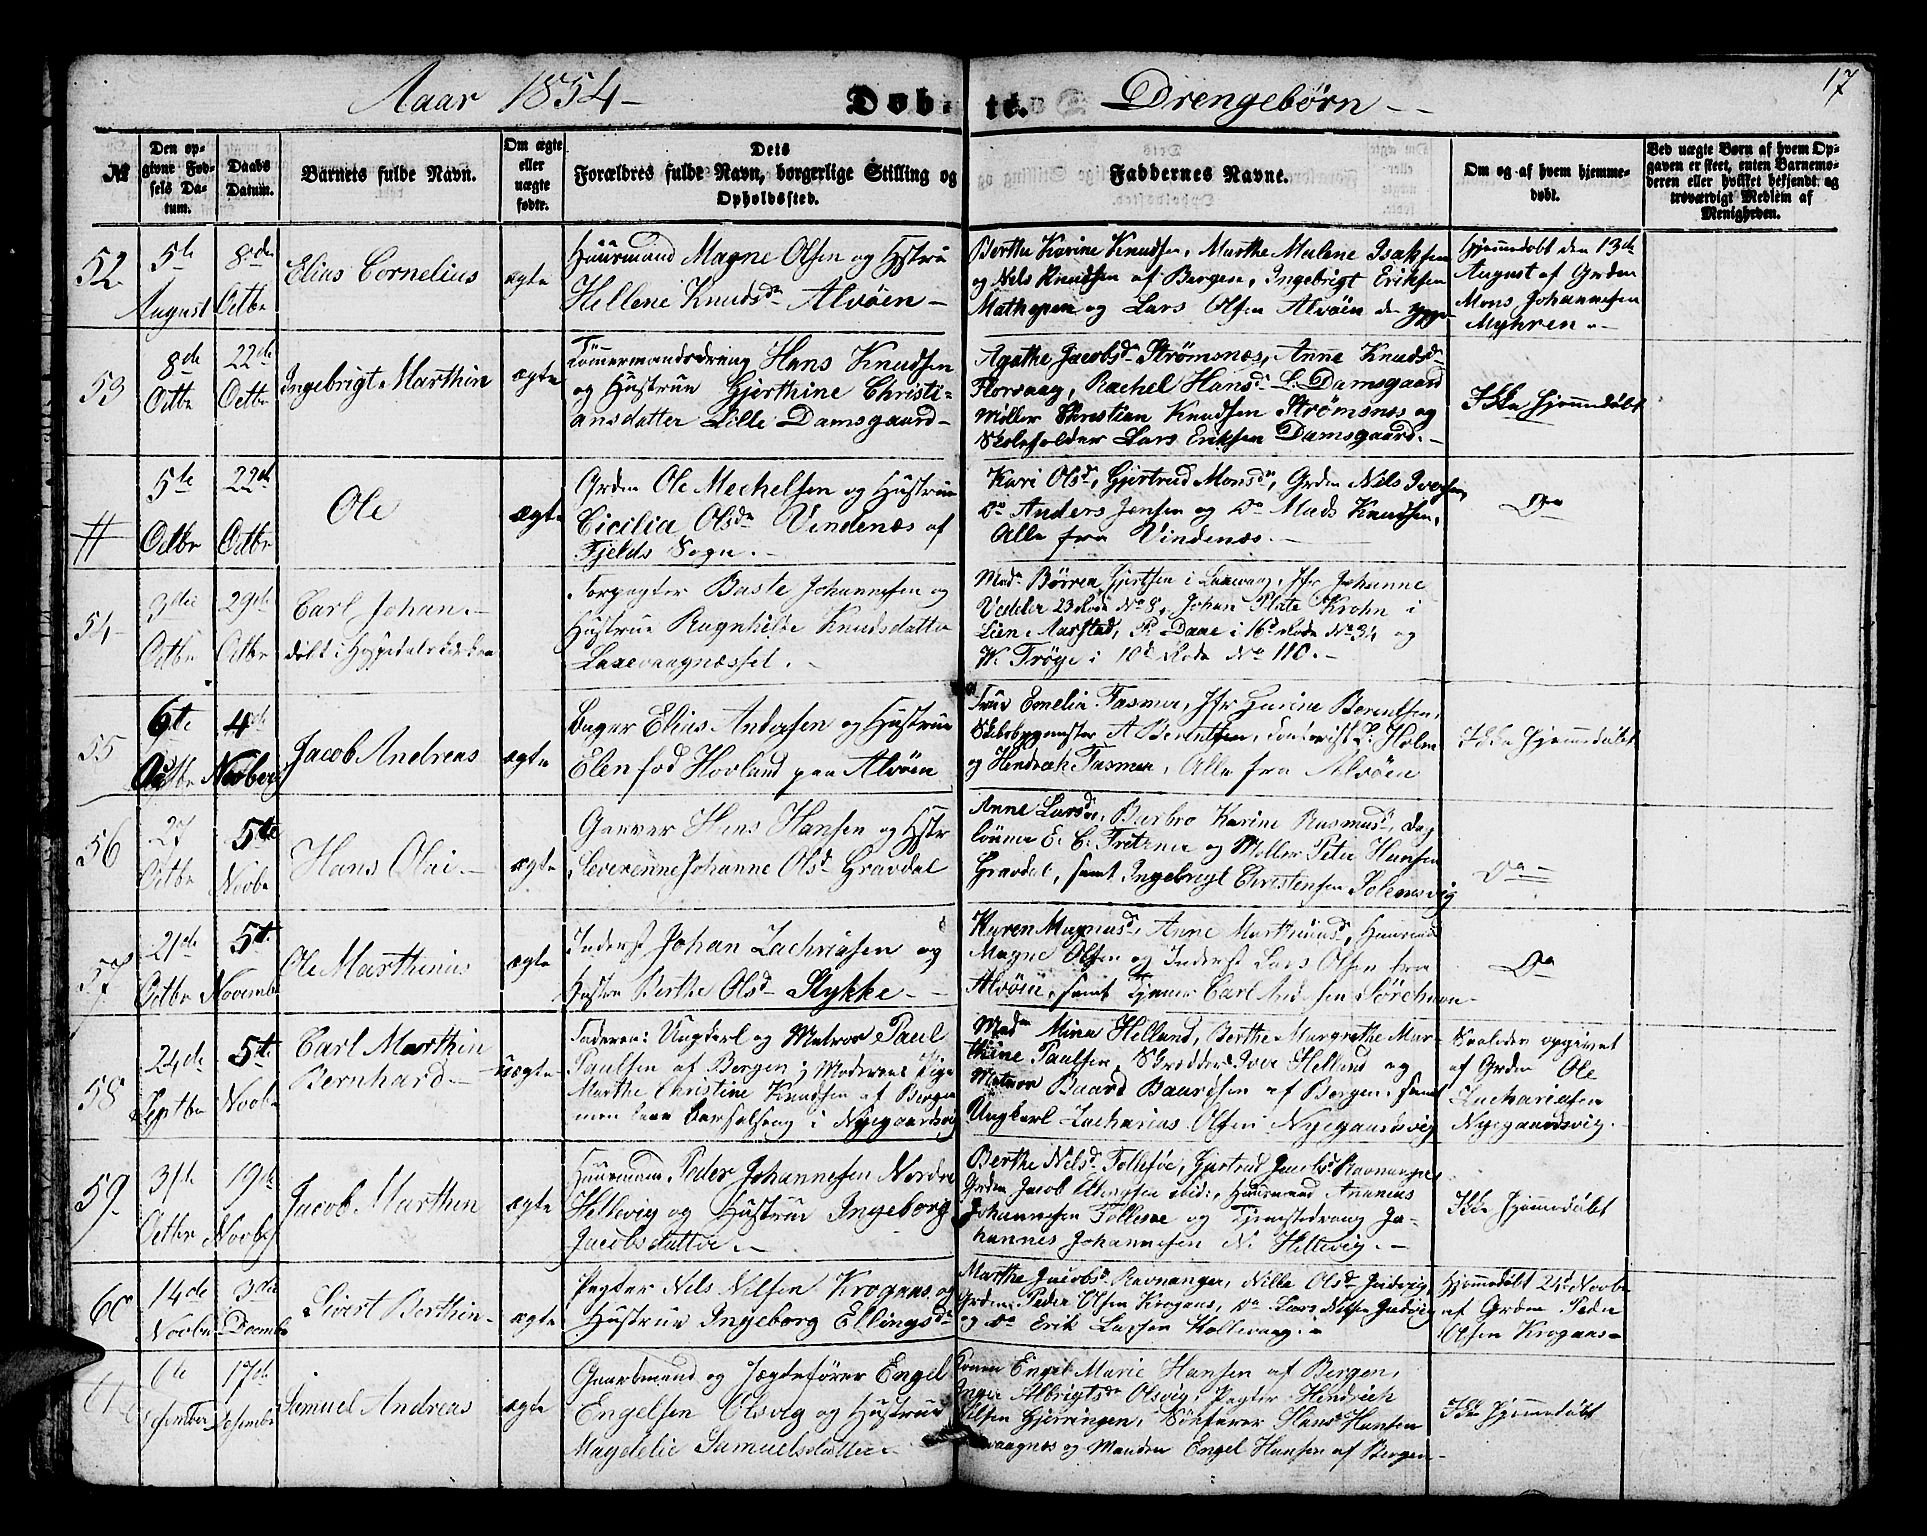 Aaar 1854 –
Døbte.
Drengebørn –
17
№
Den opgivne Fødsels Datum.
Daabs Datum.
Barnets fulde Navn.
Om ægte eller uægte født.
Dets Forældres fulde Navn, borgerlige Stilling og Opholdssted.
Faddernes Navne.
Om og af hvem hjemmedøbt.
Ved uægte Børn af hvem Opgaven er skeet, enten Barnemoderen eller hvilket bekjendt og troværdigt Medlem af Menigheden.
52
5te August
8de Octbr
Elias Cornelius
ægte
Huurmand Magne Olsen og Hstru
Hellene Knudsdr Alvøen –
Berthe Karine Knudsen, Marthe Malene Isaksen
og Nils Knudsen af Bergen, Ingebrigt Eriksen
Mathopen og Lars Olsen Alvøen
Hjemmedøbt den 13de
August af Grdm
Mons Johannesen
Myhren –
53
8de Octbr
22de Octbr
Ingebrigt Marthin
ægte
Tømmermandsdreng Hans Knudsen
og Hustrue Gjerthine Christi-
ansdatter Lille Damsgaard –
Agathe Jacobsdr Strømsnæs, Anne Knudsdr
Florvaag, Rachel Hansdr L. Damsgaard
Møller Christian Knudsen Strømsnæs og
Skoleholder Lars Eriksen Damsgaard. –
Ikke hjemmedøbt
#
5te Octbr
22de Octbr
Ole
ægte
Grdm Ole Mechelsen og Hustrue
Cicilia Olsdr Vindenæs af
Fjelds Sogn. –
Kari Olsdr, Gjertrud Monsdr, Grdm Nils Iversen,
Do Anders Jensen og Do Mads Knudsen,
Alle fra Vindenæs. –
Do
54
3die Octbr
29de Octbr
Carl Johan –
døbt i Hospitalskirken
Forpagter Baste Johannesen og
Hustrue Ragnhilde Knudsdatter
Laxevaagnæsset. –
Madm Børren Gjertsen i Laxevaag, Jfr Johanne
Vedeler 23 Rode No 8, Johan Plate Krohn i
Lien, Marstad, P. Daae i 16d Rode No 34 og
W. Trøye i 10d Rode No 110. –
55
6te Octbr
4de Novbr
Jacob Andreas
ægte
Bager Elias Andersen og Hustrue
Elen fød Hovland paa Alvøen
Frue Emelia Fasmer, Jfr Hanine Berentsen,
Skibsbygmester A Berentsen, Contorist L. Holm
og Hendrich Fasmer, Alle fra Alvøen
Ikke hjemmedøbt
56
27 Octbr
5te Novbr
Hans Olai –
ægte
Garver Hans Hansen og Hstr
Severenne Johanne Olsdr Gravdal
Anne Larsdr, Barbro Karine Rasmusdr, Dag
lønner E. C. Fretzner og Møller Peter Hansen
Gravdal, samt Ingebrigt Christensen
Do –
57
21de Octbr
5te Novembr
Ole Marthinius
ægte
Inderst Johan Zachriasen og
Hustru Berthe Olsdr Slykke –
Karen Magnusdr, Anne Marthinusdr, Huurmd
Magne Olsen og Inderst Lars Olsen fra
Alvøen, samt Tjener Carl Andersen
Do
58
24de Septbr
5te Novbr
Carl Marthin
Bernhard –
uægte
Faderen: Ungkarl og Matros Paul
Paulsen af Bergen; Moderen Pige
Marthe Christine Knudsen af Bergen
men laae Barselseng i Nygaardsvig
Madm Mina Helland, Berthe Margrethe Mar-
thine Paulsen, Skrædder Iver Helland og
Matros Baard Baardsen af Bergen, samt
Ungkarl Zacharias Olsen Nygaardsvig
Saaledes opgivet
af Grdm Ole
Zachariasen
Nygaardsvig. –
59
31te Octbr
19de Novbr
Jacob Marthin
ægte
Huurmand Peder Johannesen Nordre
Hellevig og Hustrue Ingeborg
Jacobsdatter. –
Berthe Nilsdr Follesøe, Gjertrud Jacobsdr Ravnanger
Grdm Jacob ibid:, Huurmand Ananias
Johannesen Follesøe og Tjenestedreng Jo-
hannes Johannesen N. Hellevig. –
Ikke hjemmedøbt
60
14de Novbr
3die Decmbr
Sivert Berthin –
ægte
Pagter Nils Nilsen Krogaas og
Hustrue Ingeborg Ellingsdr
Marthe Jacobsdr Ravnanger, Nille Olsdr Judvig
Grdm Peder Olsen Krogaas, Do Lars Nilsen Judvig
og Do Erik Larsen –
Hjemmedøbt 24d Novbr
af Grdm Peder
Olsen Krogaas –
61
6te Desember
17de Desembr
Samuel Andreas
ægte
Gaardmand og Jægtefører Engel
Engelsen Olsvig og Hustrue
Magdelie Samuelsdatter –
Konen Engel Marie Hansen af Bergen,
Inger Albrigtsdr Olsvig, Pagter Hindrich
Nilsen Gjerningen, Søefarer Hans Hansen
og Manden Engel Hansen af Bergen –
Ikke hjemmedøbt